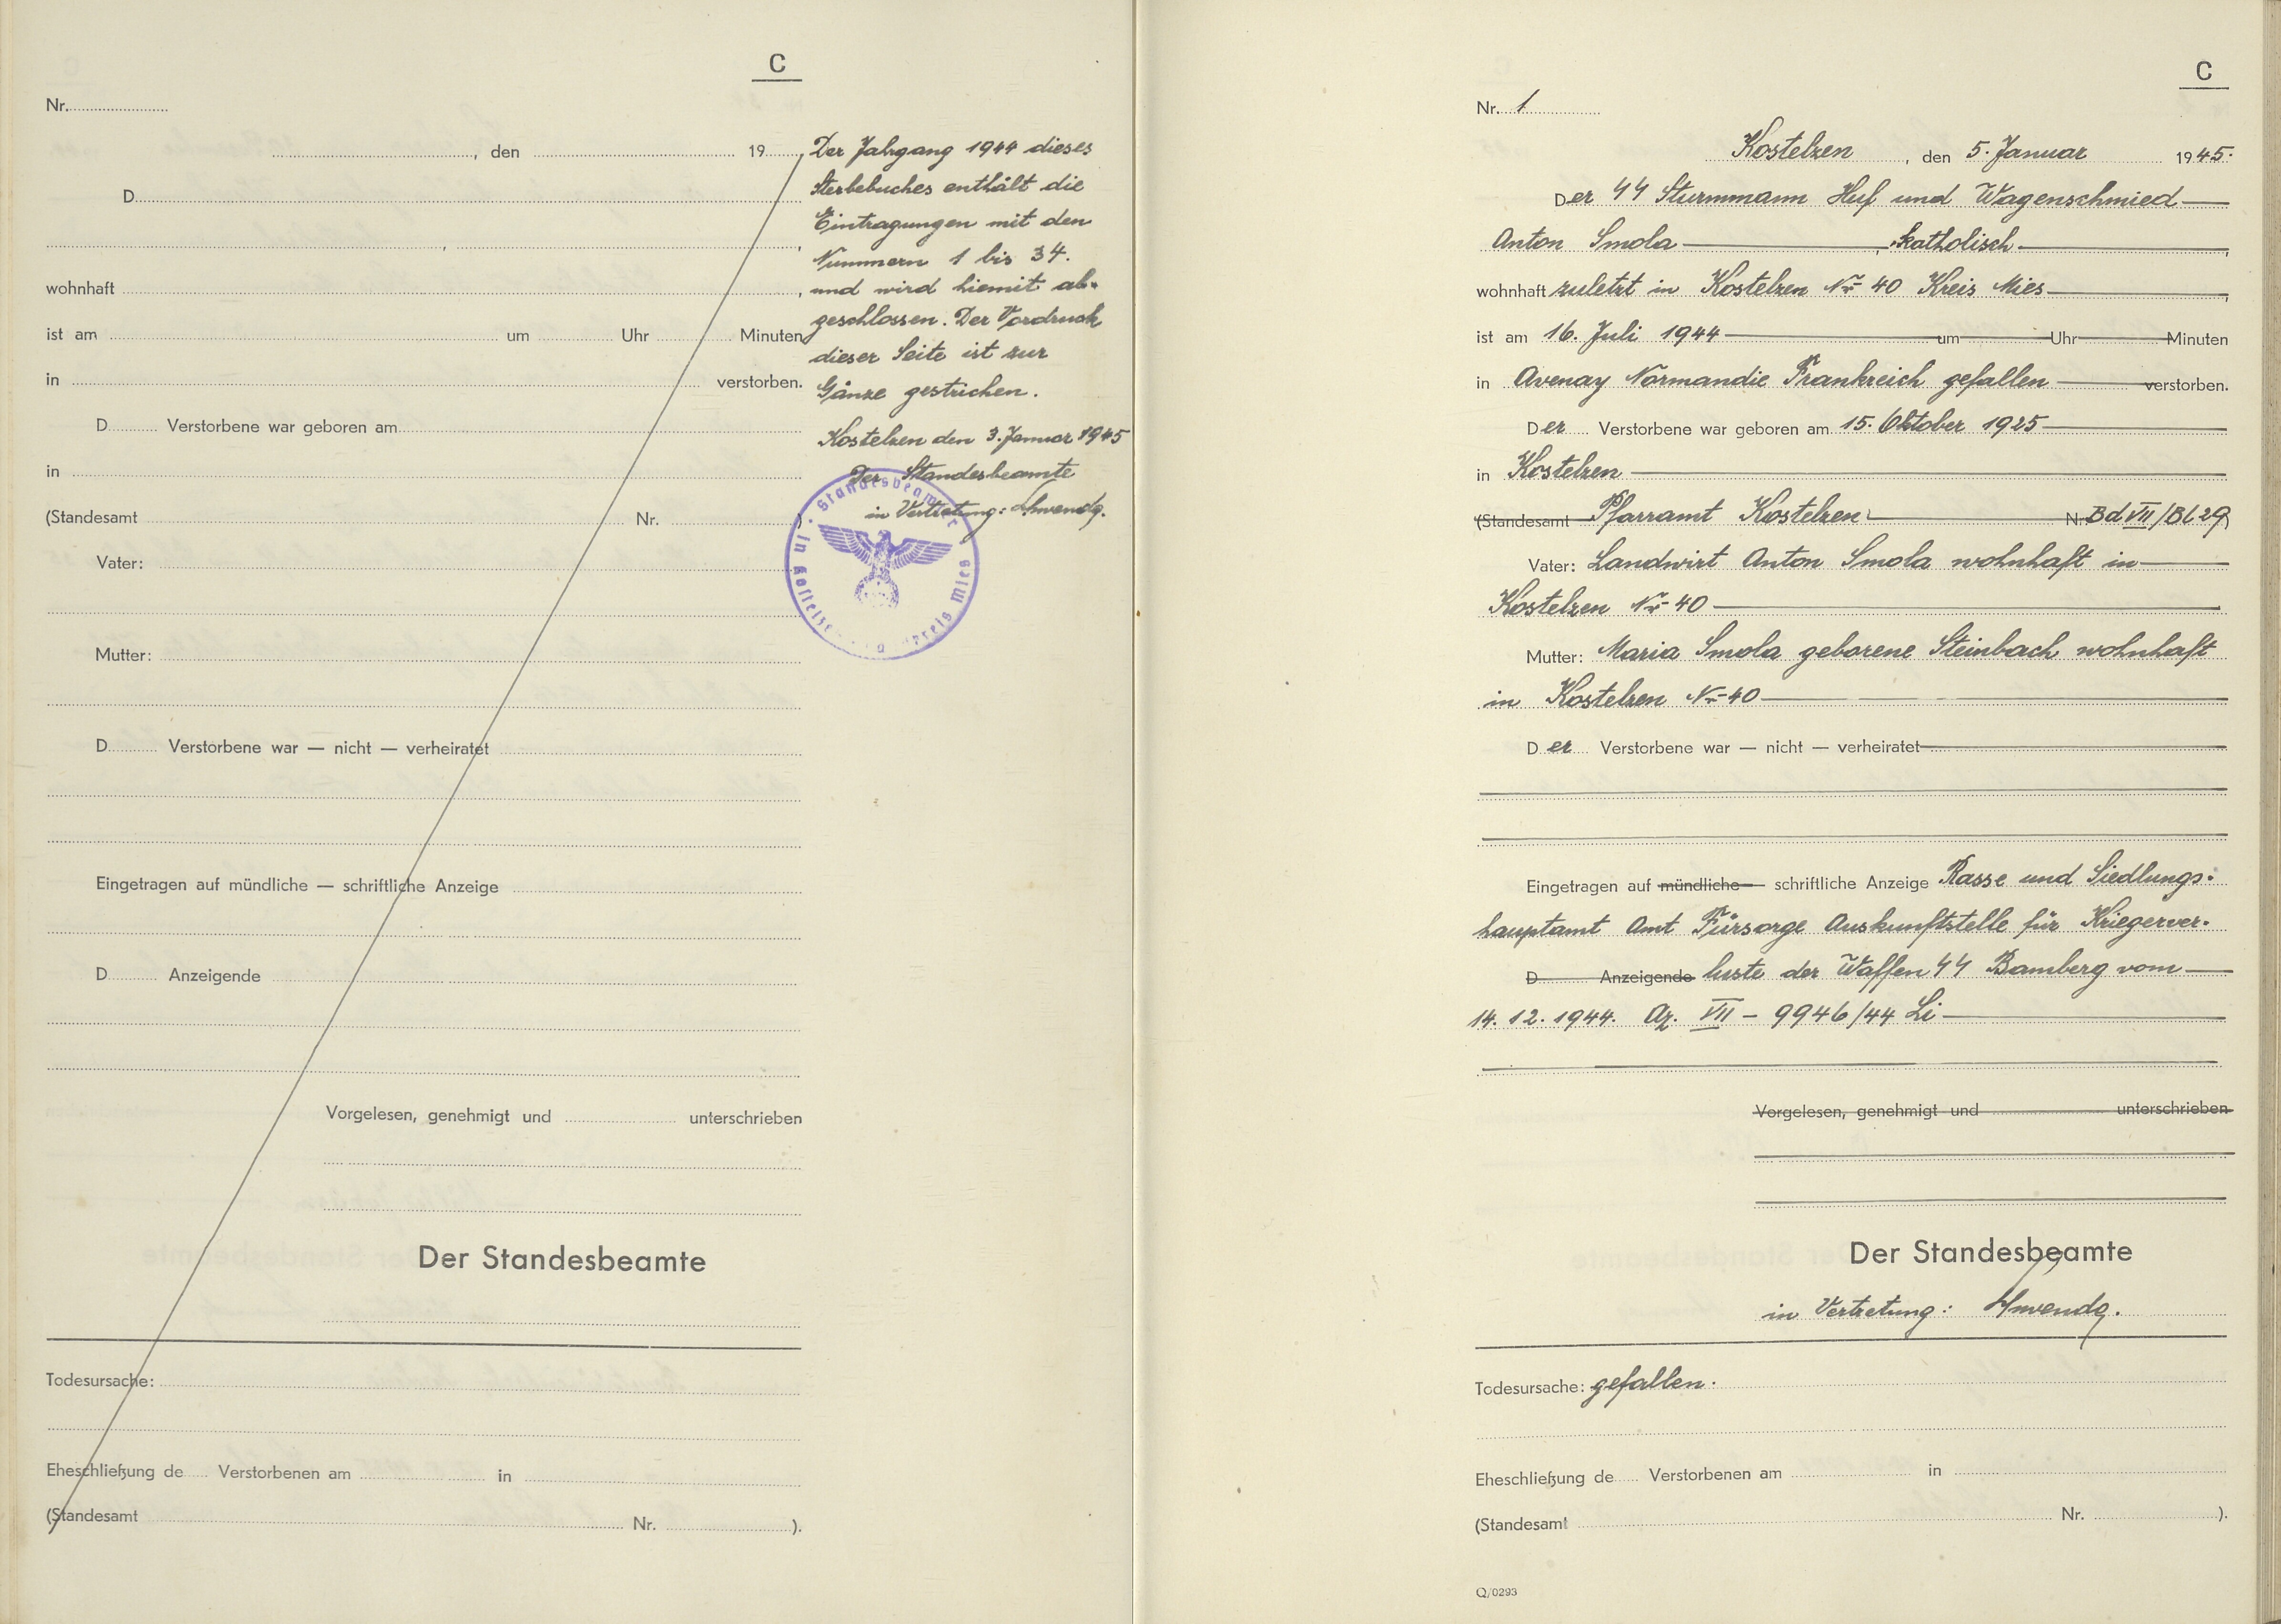 C
Nr.
, den 19
D
,
wohnhaft ,
ist am um Uhr Minuten
in verstorben.
D Verstorbene war geboren am
in
(Standesamt Nr. )
Vater:
Mutter:
D Verstorbene war — nicht — verheiratet
Eingetragen auf mündliche — schriftliche Anzeige
D Anzeigende
Vorgelesen, genehmigt und unterschrieben
Der Standesbeamte
Todesursache:
Eheschließung de Verstorbenen am in
(Standesamt Nr. ).
Der Jahrgang 1944 dieses
Sterbebuches enthält die
Eintragungen mit den
Nummern 1 bis 34.
und wird hiemit ab-
geschlossen. Der Vordruck
dieser Seite ist zur
Gänze gestrichen.
Kostelzen den 3. Januar 1945
Der Standesbeamte
in Vertretung:
Standesbeamter in Kostelzen Kreis Mies
C
Nr. 1
Kostelzen, den 5. Januar 1945.
Der SS Sturmmann Huf und Wagenschmied
Anton Smola, katholisch
wohnhaft zuletzt in Kostelzen Nr 40 Kreis Mies,
ist am 16. Juli 1944 um Uhr Minuten
in Avenay Normandie Frankreich gefallen verstorben.
Der Verstorbene war geboren am 15. Oktober 1925
in Kostelzen
(Standesamt Pfarramt Kostelzen Nr. Bd VII/Bl 29)
Vater: Landwirt Anton Smola wohnhaft in
Kostelzen Nr 40
Mutter: Maria Smola geborene Steinbach wohnhaft
in Kostelzen Nr 40
Der Verstorbene war — nicht — verheiratet
Eingetragen auf mündliche — schriftliche Anzeige Rasse und Siedlungs-
hauptamt Amt Fürsorge Auskunftstelle für Kriegerver-
D Anzeigende luste der Waffen SS Bamberg vom
14.12.1944. Az. VII - 9946/44 Li
Vorgelesen, genehmigt und unterschrieben
Der Standesbeamte
in Vertretung:
Todesursache: gefallen.
Eheschließung de Verstorbenen am in
(Standesamt Nr. ).
Q/0293